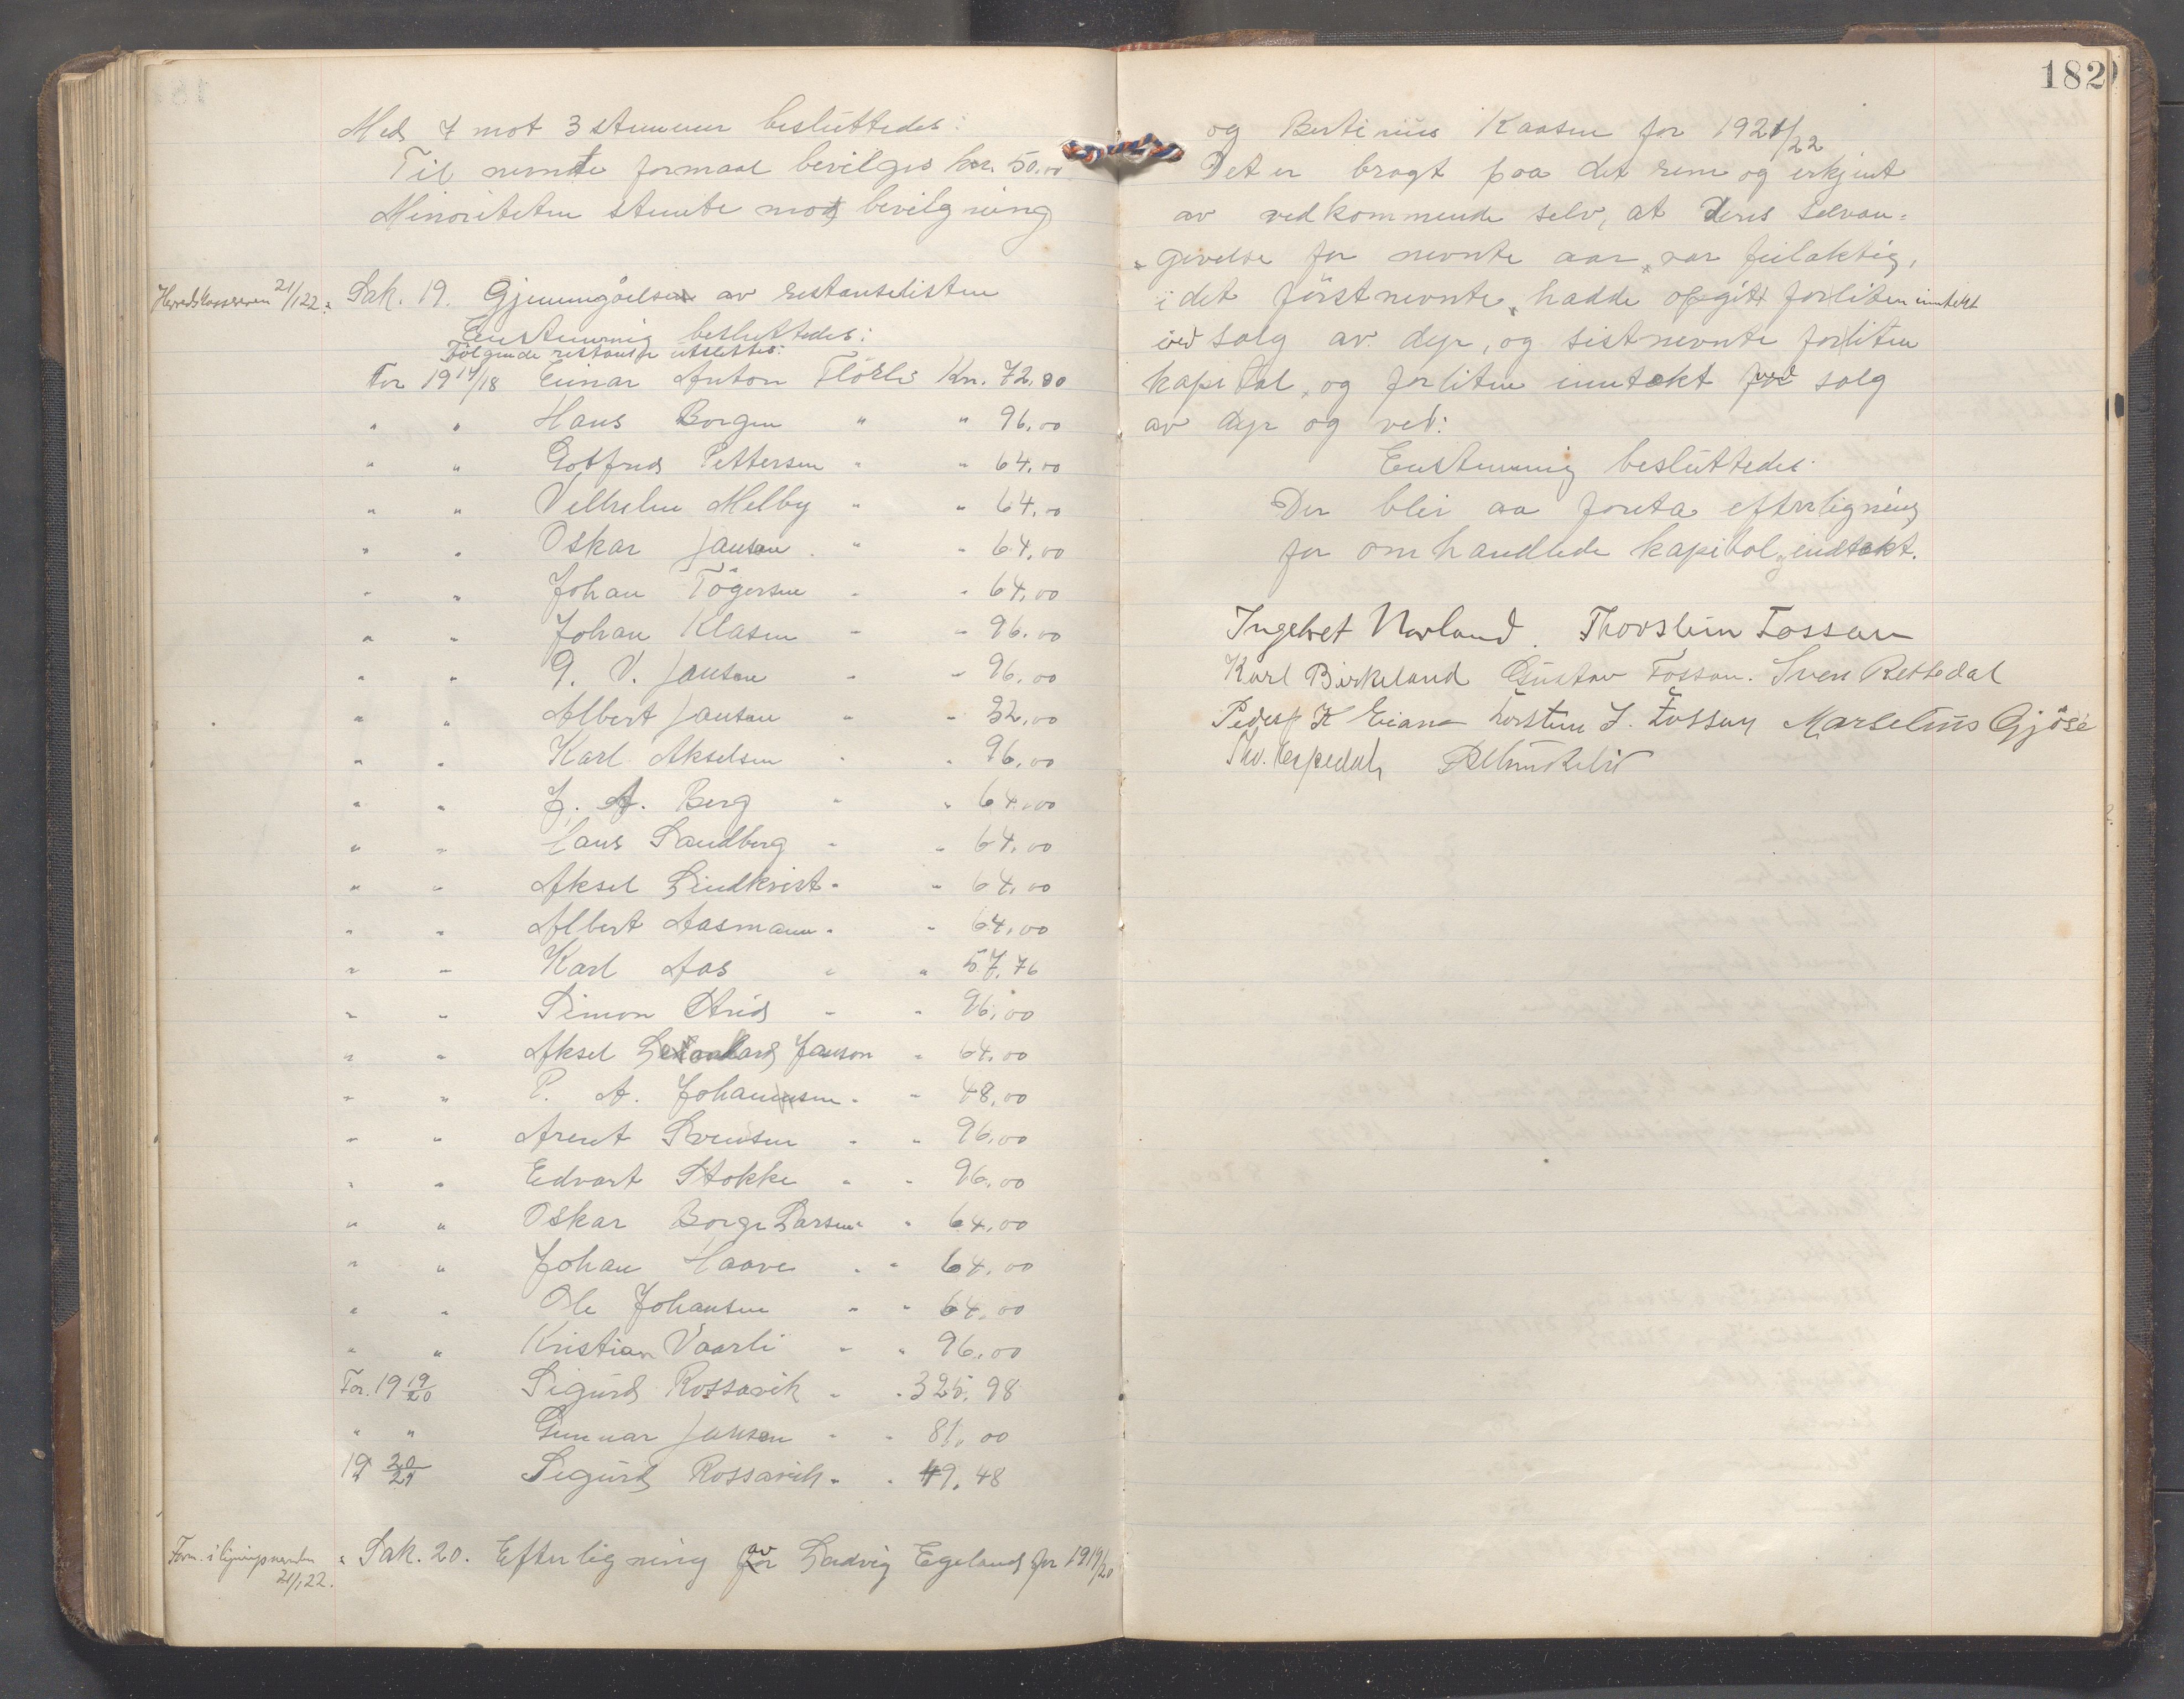 Med 7 mot 3 stemmer besluttedes:
Til nevnte formaal bevilges kr. 50.00
Minoriteten stemte mot bevilgning
Herredskassereren 21/1 22.
Sak. 19. Gjennemgåelse av restanselisten
Enstemmig besluttedes:
Følgende restanser utslettes:
For 1917/18 Einar Anton Flörli Kr. 72.00
" " Hans Borgen " " 96.00
" " Gotfred Pettersen " " 64.00
" " Vilhelm Melby " " 64.00
" " Oskar Jansen " " 64.00
" " Johan Tögersen " " 64.00
" " Johan Klasen " " 96.00
" " G. V. Jansen " " 96.00
" " Albert Jansen " " 32.00
" " Karl Akselsen " " 96.00
" " J. A. Berg " " 64.00
" " Hans Sandberg " " 64.00
" " Aksel Lindkvist " " 64.00
" " Albert Aasmann " " 64.00
" " Karl Aas " " 57.76
" " Simon Strid " " 96.00
" " Aksel Janson " 64.00
" " P. A. Johannesen " " 48.00
" " Arent Svensen " " 96.00
" " Edvart Stokke " " 96.00
" " Oskar Borge Larsen " " 64.00
" " Johan Haave " " 64.00
" " Ole Johansen " " 64.00
" " Kristian Vaarli " " 96.00
For. 19 19/20 Sigurd Rossavik " " 325.98
" " Gunnar Jansen " " 81.00
19 20/21 Sigurd Rossavik " " 49.48
Form. i ligningsnevnden 21/1 22.
Sak. 20. Efterligning av Ludvig Egeland for 1919/20
182
og Bertinius Kaasen for 1921/22
Det er bragt paa det rene og erkjent
av vedkommende selv, at deres selvan-
givelse for nevnte aar var feilaktig,
idet förstnevnte hadde opgitt forliten inntekt
ved salg av dyr, og sistnevnte forliten
kapital og forliten inntekt ved salg
av dyr og ved:
Enstemmig besluttedes:
Der blir aa foreta efterligning
for omhandlede kapital og indtekt.
Ingebret Norland. Thorstein Fossan
Karl Birkeland Gustav Fossan. Sven Rettedal
Peder K Eiane Torstein J. Fossan Marselius Gjöse
Tho. Espedal